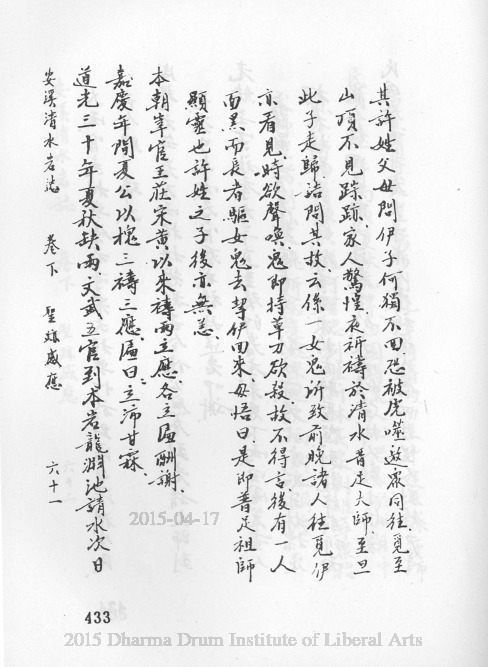 其許姓父母問伊子何獨不回恐被虎噬遂眾同往覓至
山頂不見踪跡家人驚惶夜祈禱於清水普足大師至旦
此子走歸詰問其故云係一女鬼所致前晚諸人往覓伊
亦看見時欲聲喚鬼即持草刀欲殺故不得言後有一人
面黑而長者驅女鬼去挈伊回來母悟曰是即普足祖師
顯靈也許姓之子後亦無恙
本朝宰官王莊宋黃以來禱雨立應各立匾酬謝
嘉慶年間夏公以槐三禱三應匾曰立沛甘霖
道光三十年夏秋缺雨文武五官到本岩龍湫池請水次日
安溪清水岩志 卷下 聖蹟感應 六十一
433
2015-04-17
2015 Dharma Drum Institute of Liberal Arts